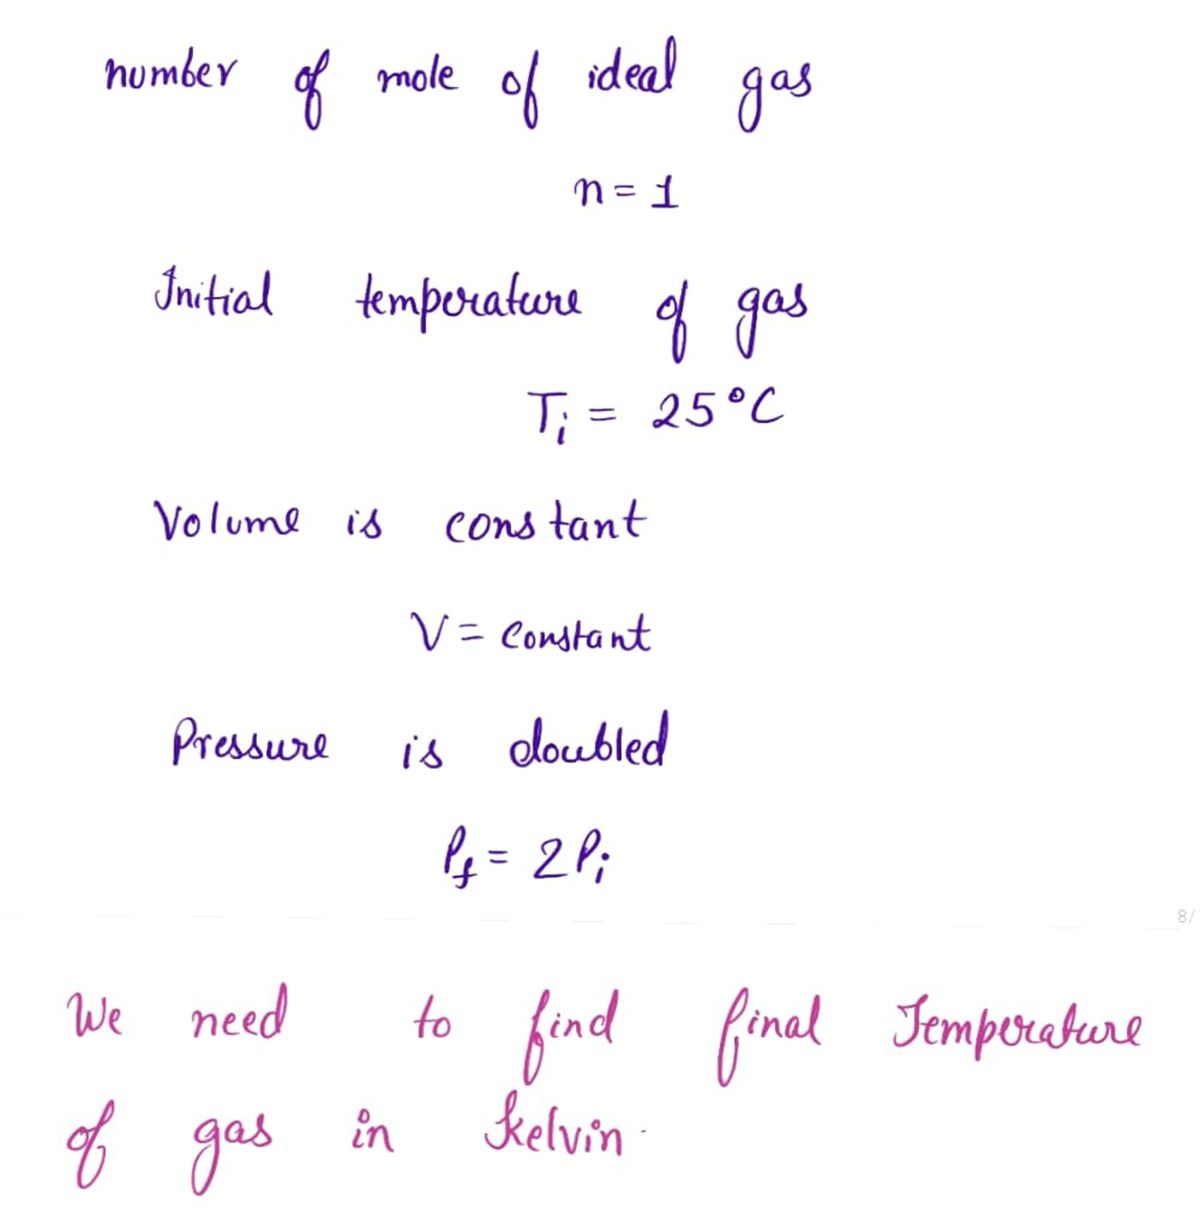 number of mole of ideal gas
n = 1
Initial temperature of gas
Ti = 25°C
Volume is constant
V = Constant
Pressure is doubled
Pf = 2Pi
8/
We need to find final Temperature
of gas in kelvin.